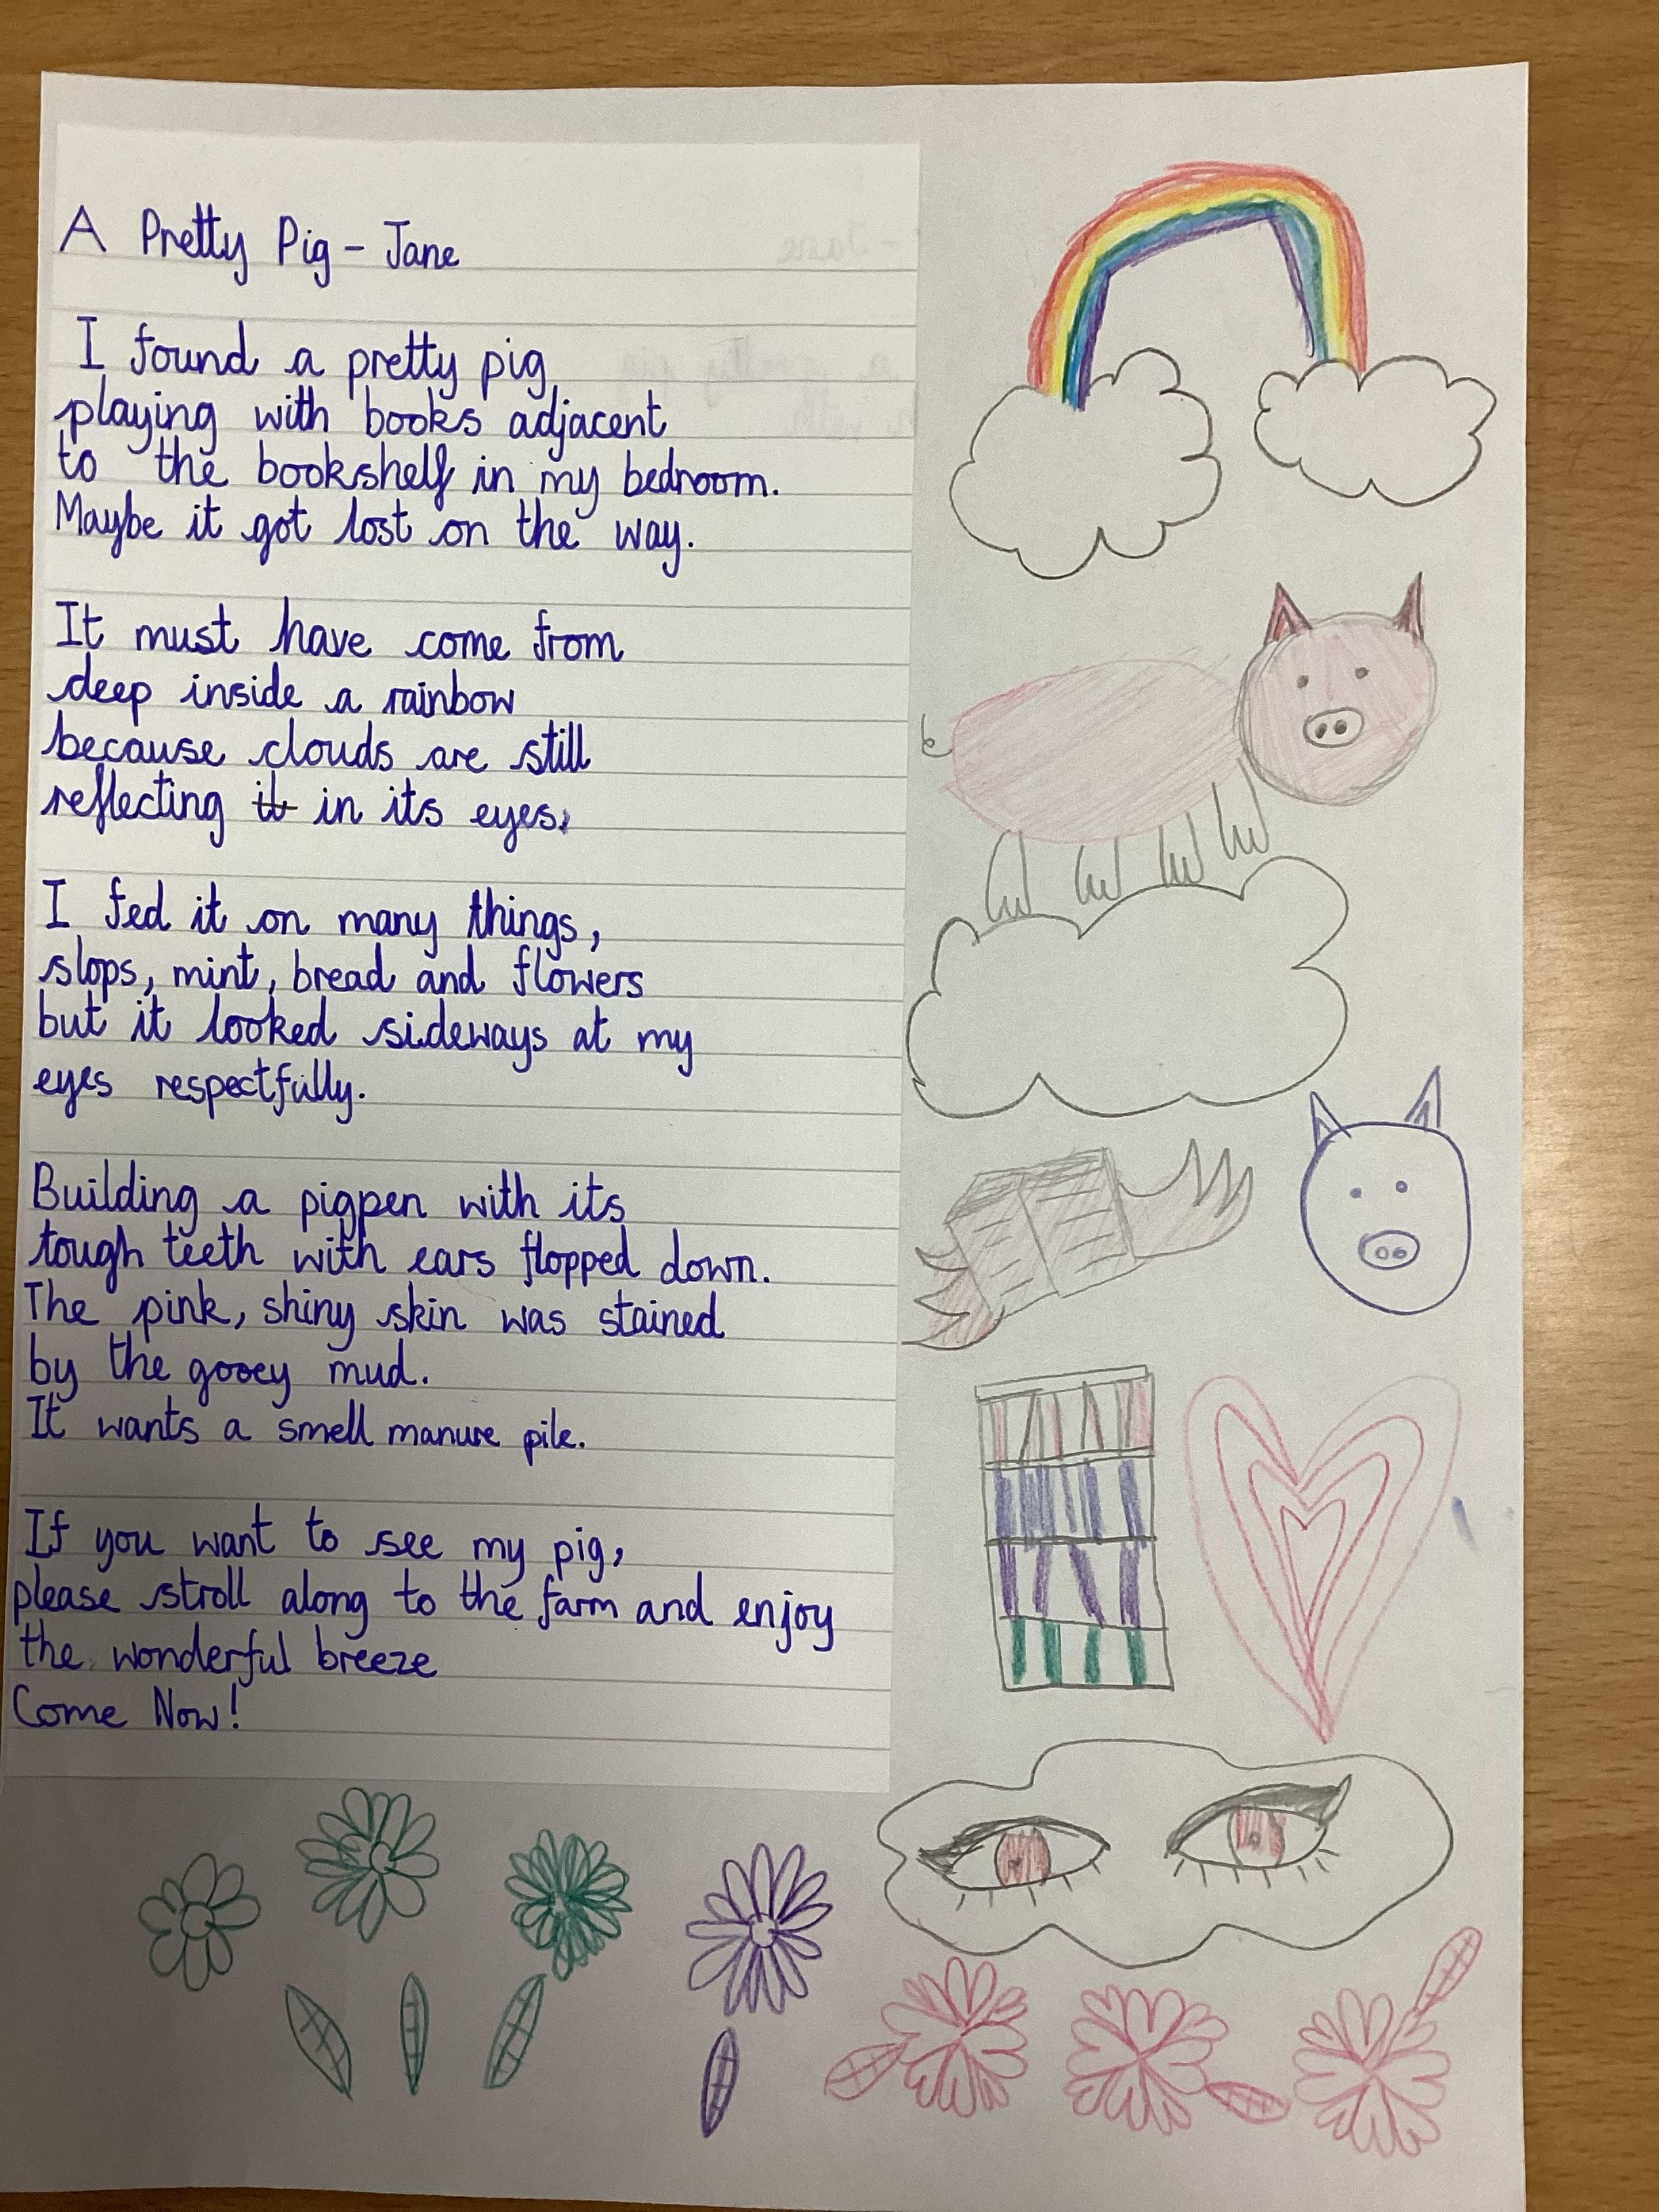 A Pretty Pig - Jane
I found a pretty pig
playing with books adjacent
to the bookshelf in my bedroom.
Maybe it got lost on the way.
It must have come from
deep inside a rainbow
because clouds are still
reflecting it in its eyes.
I fed it on many things,
slops, mint, bread and flowers
but it looked sideways at my
eyes respectfully.
Building a pigpen with its
tough teeth with ears flopped down.
The pink, shiny skin was stained
by the gooey mud.
It wants a smell manure pile.
If you want to see my pig,
please stroll along to the farm and enjoy
the wonderful breeze
Come Now!